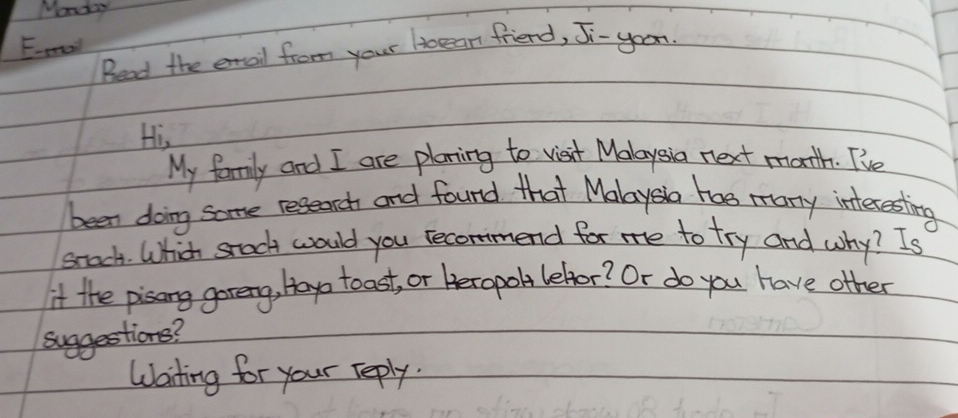 Monday
E-mail
Read the email from your Korean friend, Ji-yoon.
Hi,
My family and I are planing to visit Malaysia next month. I've
been doing some research and found that Malaysia has many interesting
snack. Which snack would you recommend for me to try and why? Is
it the pisang goreng, Kaya toast, or Keropok lekor? Or do you have other
suggestions?
Waiting for your reply.